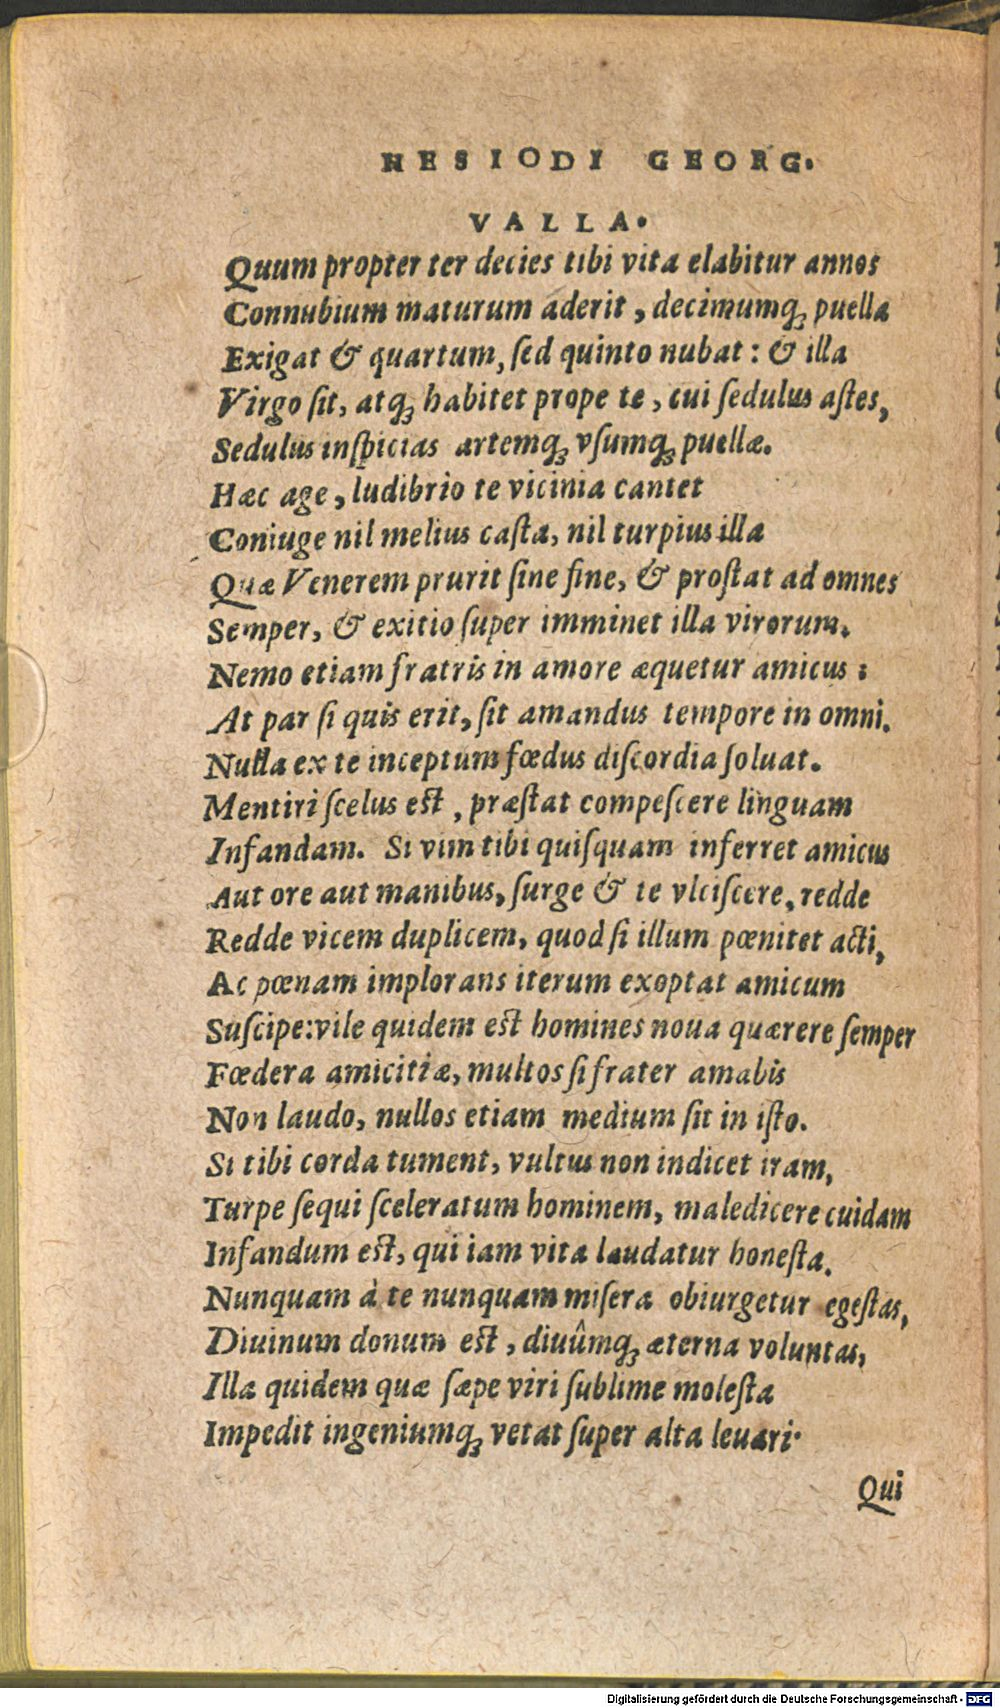 HESIODI GEORG.
VALLA.
Quum propter ter decies tibi vita elabitur annos
Connubium maturum aderit, decimumqꝫ puella
Exigat & quartum, ſed quinto nubat: & illa
Virgo ſit, atqꝫ habitet prope te, cui ſedulus aſtes,
Sedulus inſpicias artemqꝫ vſumqꝫ puellæ.
Hæc age, ludibrio te vicinia cantet
Coniuge nil melius caſta, nil turpius illa
Quæ Venerem prurit ſine fine, & proſtat ad omnes
Semper, & exitio ſuper imminet illa virorum.
Nemo etiam fratris in amore æquetur amicus:
At par ſi quis erit, ſit amandus tempore in omni.
Nulla ex te inceptum fœdus diſcordia ſoluat.
Mentiri ſcelus eſt, præſtat compeſcere linguam
Infandam. Si vim tibi quiſquam inferret amicus
Aut ore aut manibus, ſurge & te vlciſcere, redde
Redde vicem duplicem, quod ſi illum pœnitet acti,
Ac pœnam implorans iterum exoptat amicum
Suſcipe: vile quidem eſt homines noua quærere ſemper
Fœdera amicitiæ, multos ſi frater amabis
Non laudo, nullos etiam medium ſit in iſto.
Si tibi corda tument, vultus non indicet iram,
Turpe ſequi ſceleratum hominem, maledicere cuidam
Infandum eſt, qui iam vita laudatur honeſta.
Nunquam à te nunquam miſera obiurgetur egeſtas,
Diuinum donum eſt, diuûmqꝫ æterna voluntas,
Illa quidem quæ ſæpe viri ſublime moleſta
Impedit ingeniumqꝫ vetat ſuper alta leuari.
Qui
Digitalisierung gefördert durch die Deutsche Forschungsgemeinschaft - DFG